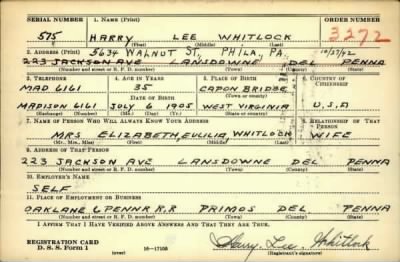 SERIAL NUMBER 1. NAME (Print) ORDER NUMBER
575 HARRY LEE WHITLOCK 3272
(First) (Middle) (Last)
2. ADDRESS (Print) 5634 WALNUT ST., PHILA., PA. 10/27/42
223 JACKSON AVE LANSDOWNE DEL PENNA
(Number and street or R. F. D. number) (Town) (County) (State)
3. TELEPHONE 4. AGE IN YEARS 5. PLACE OF BIRTH 6. COUNTRY OF CITIZENSHIP
MAD 6161 35 CAPON BRIDGE
DATE OF BIRTH (Town or county)
MADISON 6161 JULY 6 1905 WEST VIRGINIA U.S.A
(Exchange) (Number) (Mo.) (Day) (Yr.) (State or country)
7. NAME OF PERSON WHO WILL ALWAYS KNOW YOUR ADDRESS 8. RELATIONSHIP OF THAT PERSON
MRS ELIZABETH, EULILIA, WHITLOCK WIFE
(Mr., Mrs., Miss) (First) (Middle) (Last)
9. ADDRESS OF THAT PERSON
223 JACKSON AVE LANSDOWNE DEL PENNA
(Number and street or R. F. D. number) (Town) (County) (State)
10. EMPLOYER'S NAME
SELF
11. PLACE OF EMPLOYMENT OR BUSINESS
OAKLANE & PENNR R.R PRIMOS DEL PENNA
(Number and street or R. F. D. number) (Town) (County) (State)
I AFFIRM THAT I HAVE VERIFIED ABOVE ANSWERS AND THAT THEY ARE TRUE.
REGISTRATION CARD
D. S. S. Form 1 (over) 16-17105 Harry Lee Whitlock
(Registrant's signature)